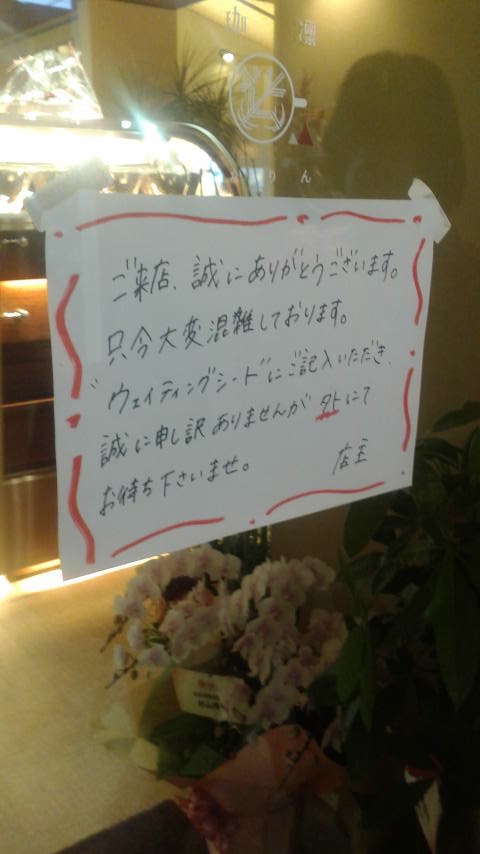 珈 凛
りん
ご来店、誠にありがとうございます。
只今大変混雑しております。
"ウェイティングシード"にご記入いただき、
誠に申し訳ありませんが 外にて
お待ち下さいませ。
店主